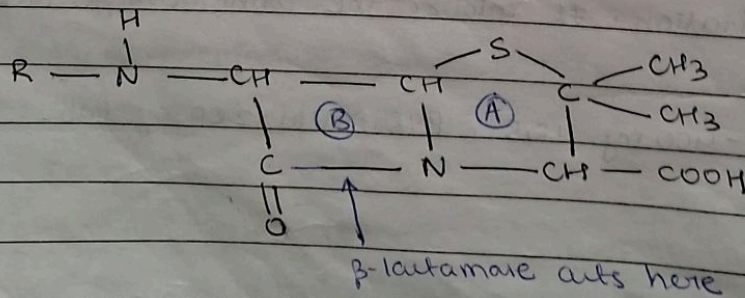 H
S
R — N — CH — CH C CH3
CH3
B A
C — N — CH — COOH
O
β-lactamase acts here